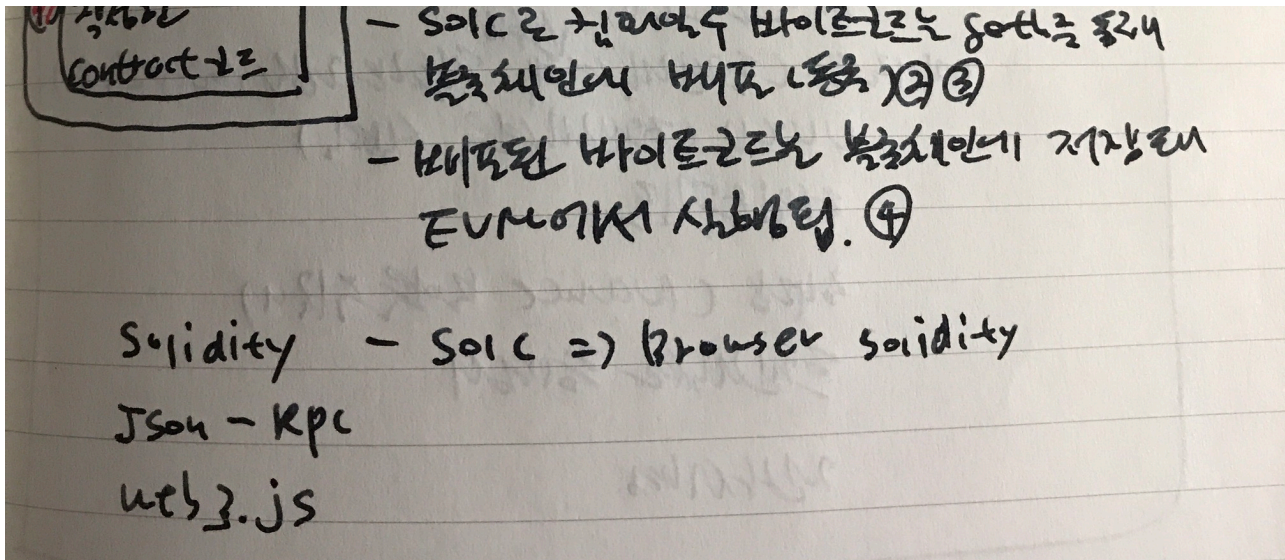 작성한
contract 코드
- Solc로 컴파일 후 바이트코드는 geth를 통해
블록체인에 배포 (등록) ② ③
- 배포된 바이트코드는 블록체인에 저장돼
EVM에서 실행됨. ④
Solidity - Solc => Browser solidity
Json - Rpc
web3.js